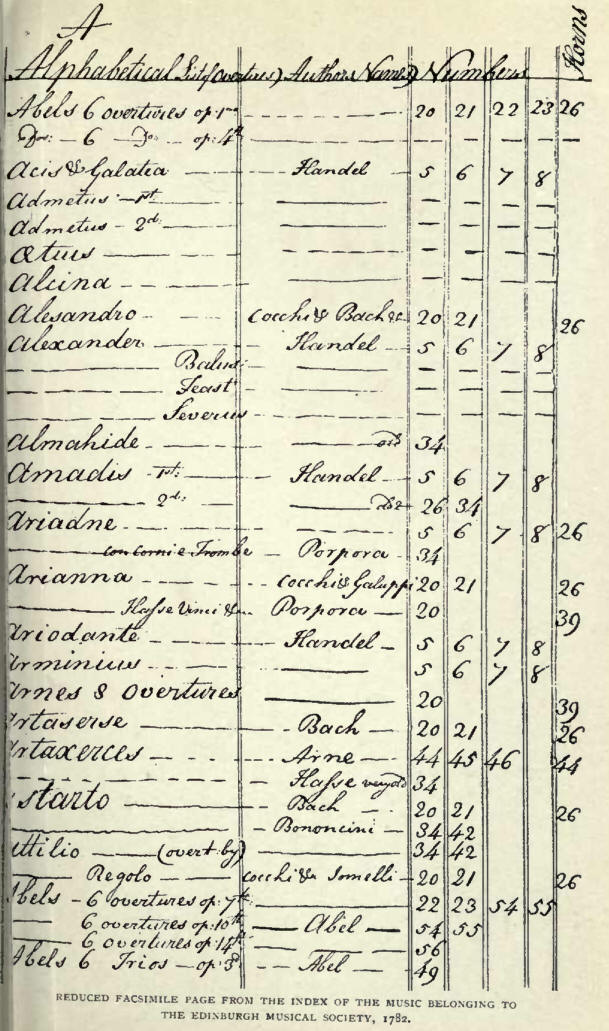 A
Horns
Alphabetical List of overtures) Authors Names) Numbers
Abels 6 overtures op: 1mo - - - - 20 21 22 23 26
Do: - 6 - Do - op: 4th - - - - - - -
Acis & Galatea - Handel - 5 6 7 8
Admetus - 1st: — — — — —
Admetus - 2d: — — — — —
Ætius — — — — — —
Alcina — — — — — —
Alesandro - - - Cocchi & Bach &c 20 21 26
Alexander - - - Handel - 5 6 7 8
— — — Balus - — — — — —
— — — Feast — — — — —
— — — Severus — — — — —
Almahide - — — — 34
Amadis - 1st: — Handel - 5 6 7 8
— — 2d: — — Do 26 34
Ariadne - — — — 5 6 7 8 26
— con Corni e Trombe - Porpora - 34
Arianna - - - - Cocchi & Galuppi 20 21 26
— Hasse Vinci &c. - Porpora — 20 39
Ariodante - - - Handel - 5 6 7 8
Arminius - — — — 5 6 7 8
Arnes 8 Overtures — 20 39
Artaserse — — Bach — 20 21 26
Artaxerces - - - Arne — 44 45 46 44
- - - - - Hasse very old 34
Astarto — — Bach - 20 21 26
— — - Bononcini - 34 42
Attilio — (overt: by) — 34 42
— Regolo — Cocchi & Jomelli - 20 21 26
Abels - 6 overtures op: 7th: — 22 23 54 55
— 6 overtures op: 10th — Abel — 54 55
— 6 overtures op: 14th — — 56
Abels 6 Trios - op: 3d - - Abel — 49
REDUCED FACSIMILE PAGE FROM THE INDEX OF THE MUSIC BELONGING TO
THE EDINBURGH MUSICAL SOCIETY, 1782.